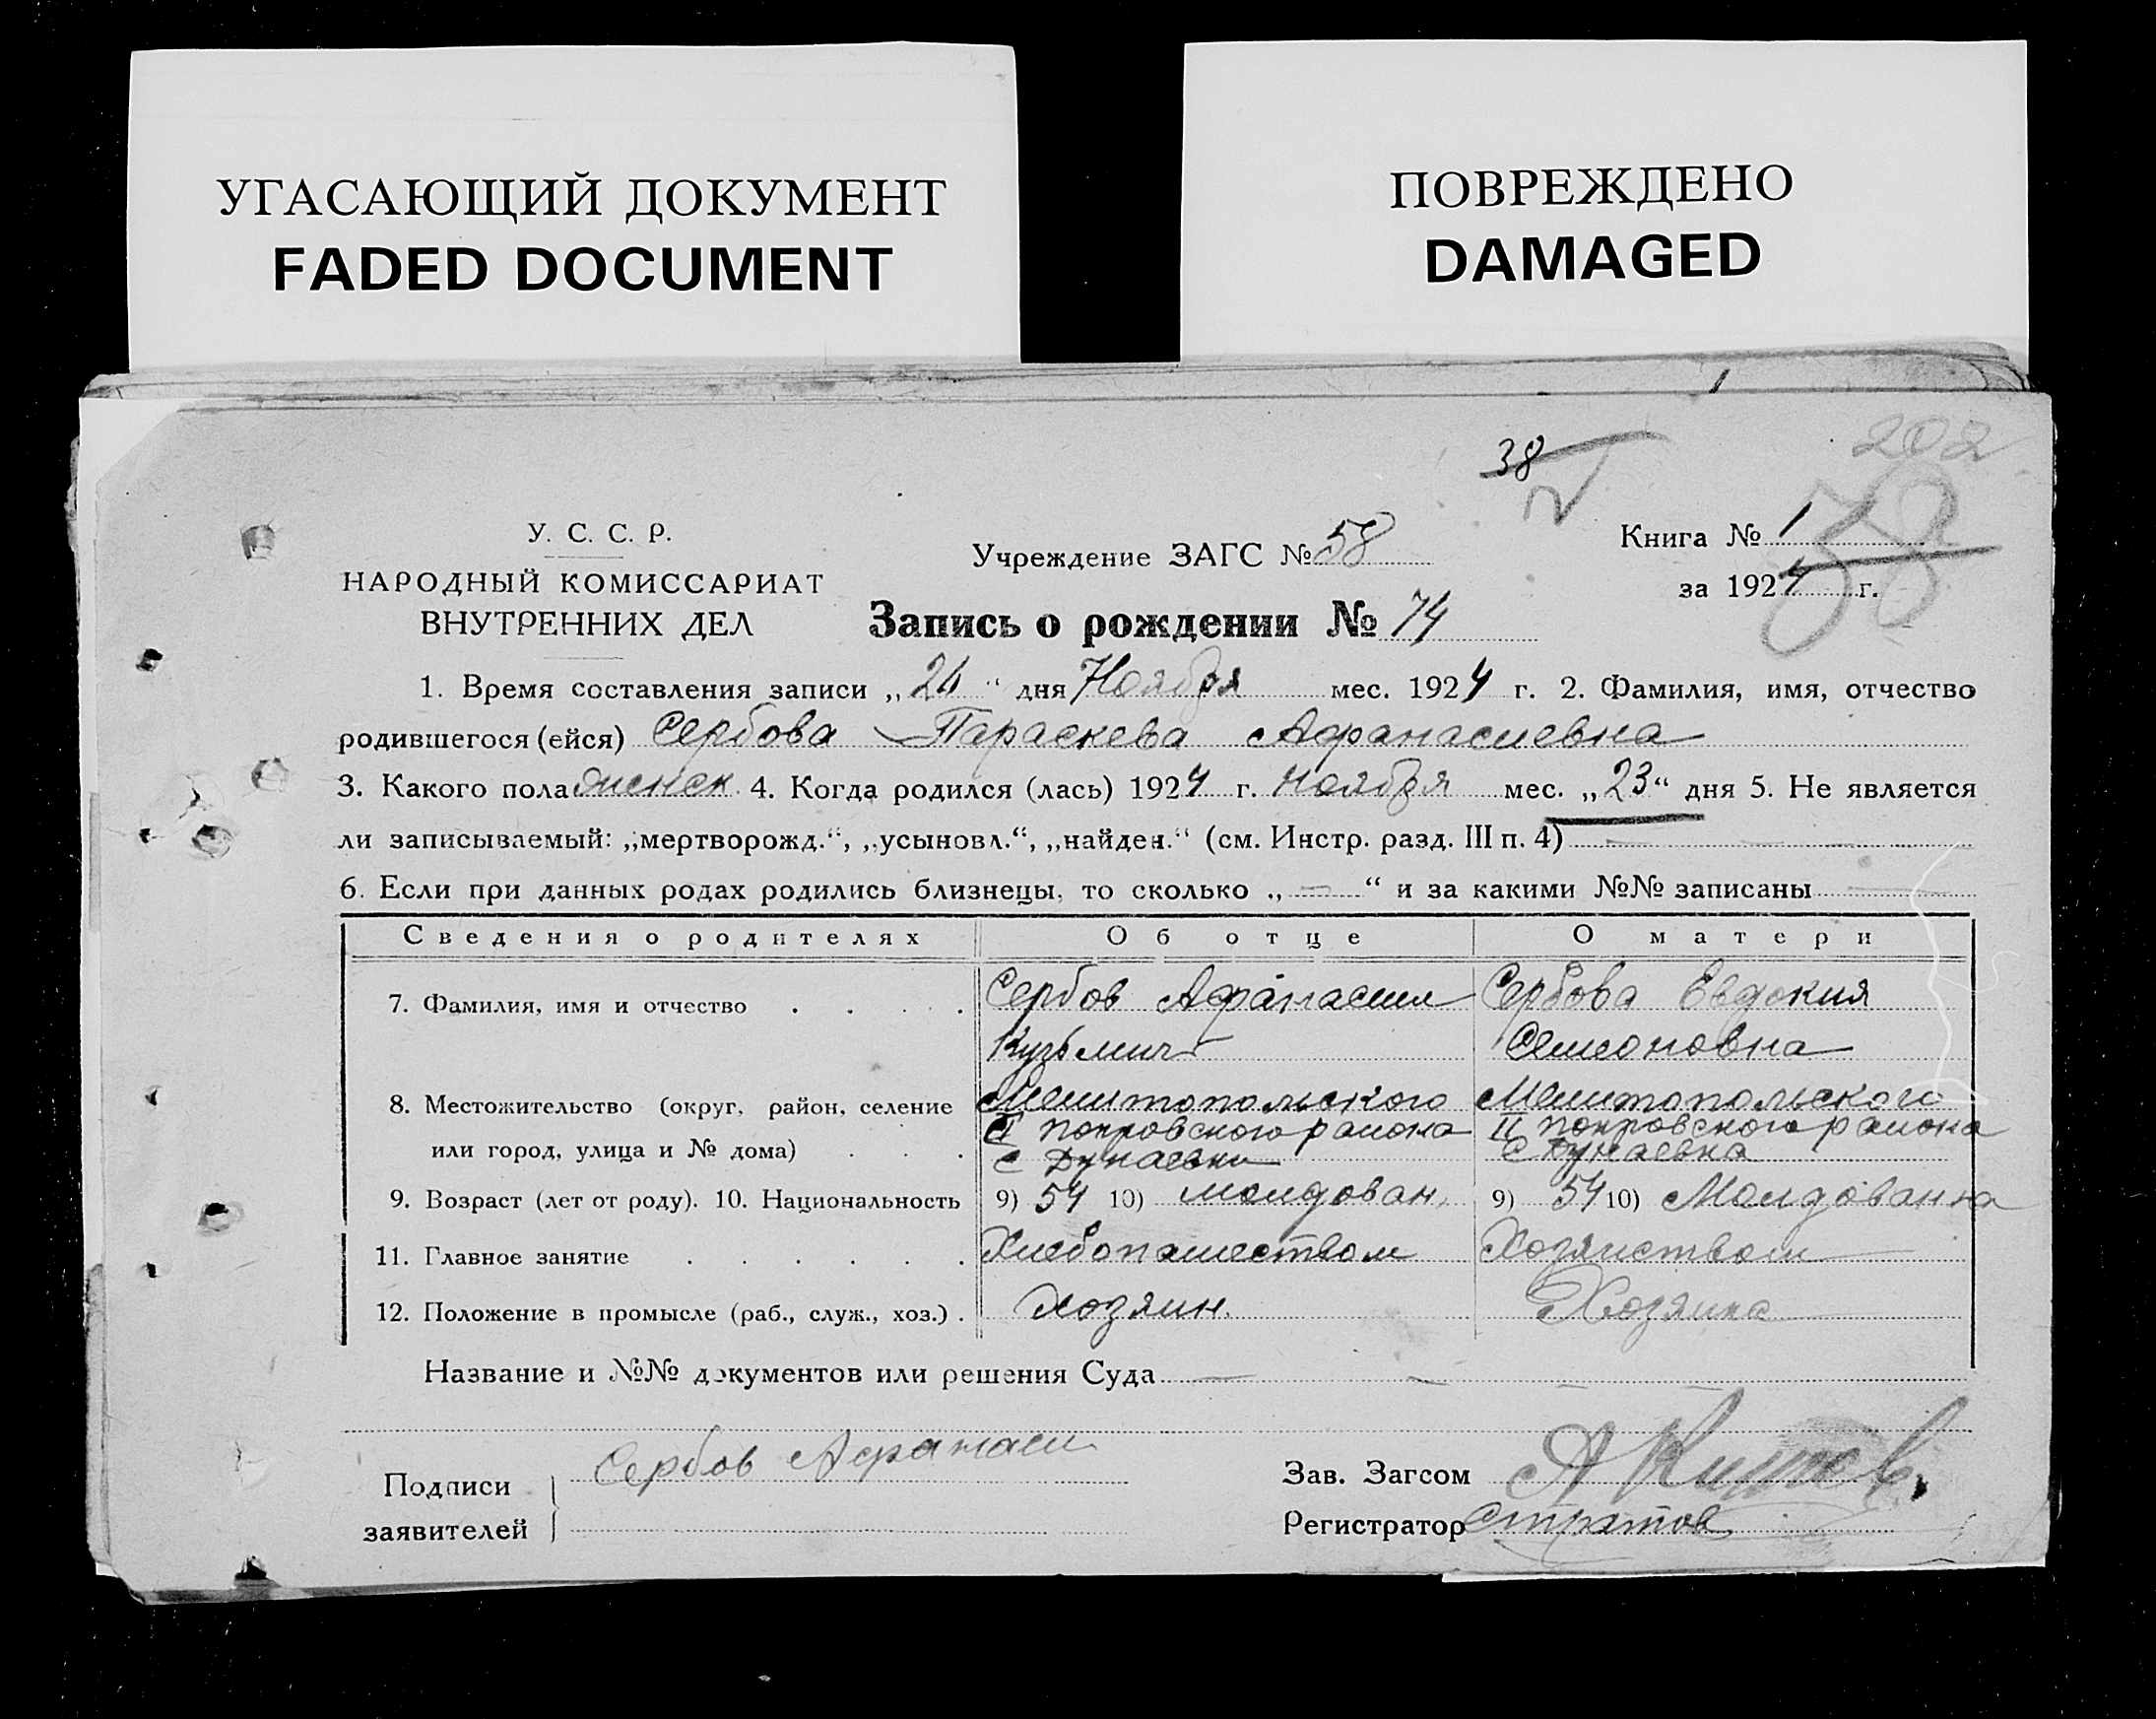 УГАСАЮЩИЙ ДОКУМЕНТ
FADED DOCUMENT
ПОВРЕЖДЕНО
DAMAGED
202
38
38
У. С. С. Р.
НАРОДНЫЙ КОМИССАРИАТ
ВНУТРЕННИХ ДЕЛ
Учреждение ЗАГС № 58
Книга № 1
за 1924 г.
Запись о рождении № 74
1. Время составления записи „24“ дня Ноября мес. 1924 г. 2. Фамилия, имя, отчество
родившегося (ейся) Сербова Параскева Афанасиевна
3. Какого пола женск. 4. Когда родился (лась) 1924 г. Ноября мес. „23“ дня 5. Не является
ли записываемый: „мертворожд.“, „усыновл.“, „найден.“ (см. Инстр. разд. III п. 4) —
6. Если при данных родах родились близнецы, то сколько „—“ и за какими №№ записаны —
Сведения о родителях Об отце О матери
7. Фамилия, имя и отчество . . . . Сербов Афанасии Сербова Евдокия
Кузьмич Семоновна
8. Местожительство (округ, район, селение Мелитопольского Мелитопольского
II покровского района II покровского района
или город, улица и № дома) . . . с Дунаевки с Дунаевка
9. Возраст (лет от роду). 10. Национальность 9) 54 10) молдован, 9) 54 10) Молдованка
11. Главное занятие . . . . . . Хлебопашеством Хозяиством
12. Положение в промысле (раб., служ., хоз.) . Хозяин. Хозяика
Название и №№ документов или решения Суда — —
Подписи
заявителей
Сербов Афанаси
Зав. Загсом
Регистратор Стратов